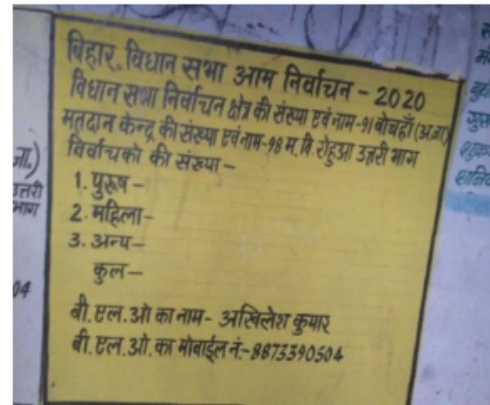 बिहार. विधान सभा आम निर्वाचन - 2020
विधान सभा निर्वाचन क्षेत्र की संख्या एवं नाम-91 बोचहाँ (अ.जा.)
मतदान केन्द्र की संख्या एवं नाम-98 म. वि. रोहुआ उत्तरी भाग
निर्वाचको की संख्या -
1. पुरुष -
2. महिला -
3. अन्य -
कुल -
बी. एल. ओ का नाम - अखिलेश कुमार
बी. एल. ओ. का मोबाईल नं.- 8873390504
जा.)
उत्तरी
भाग
04